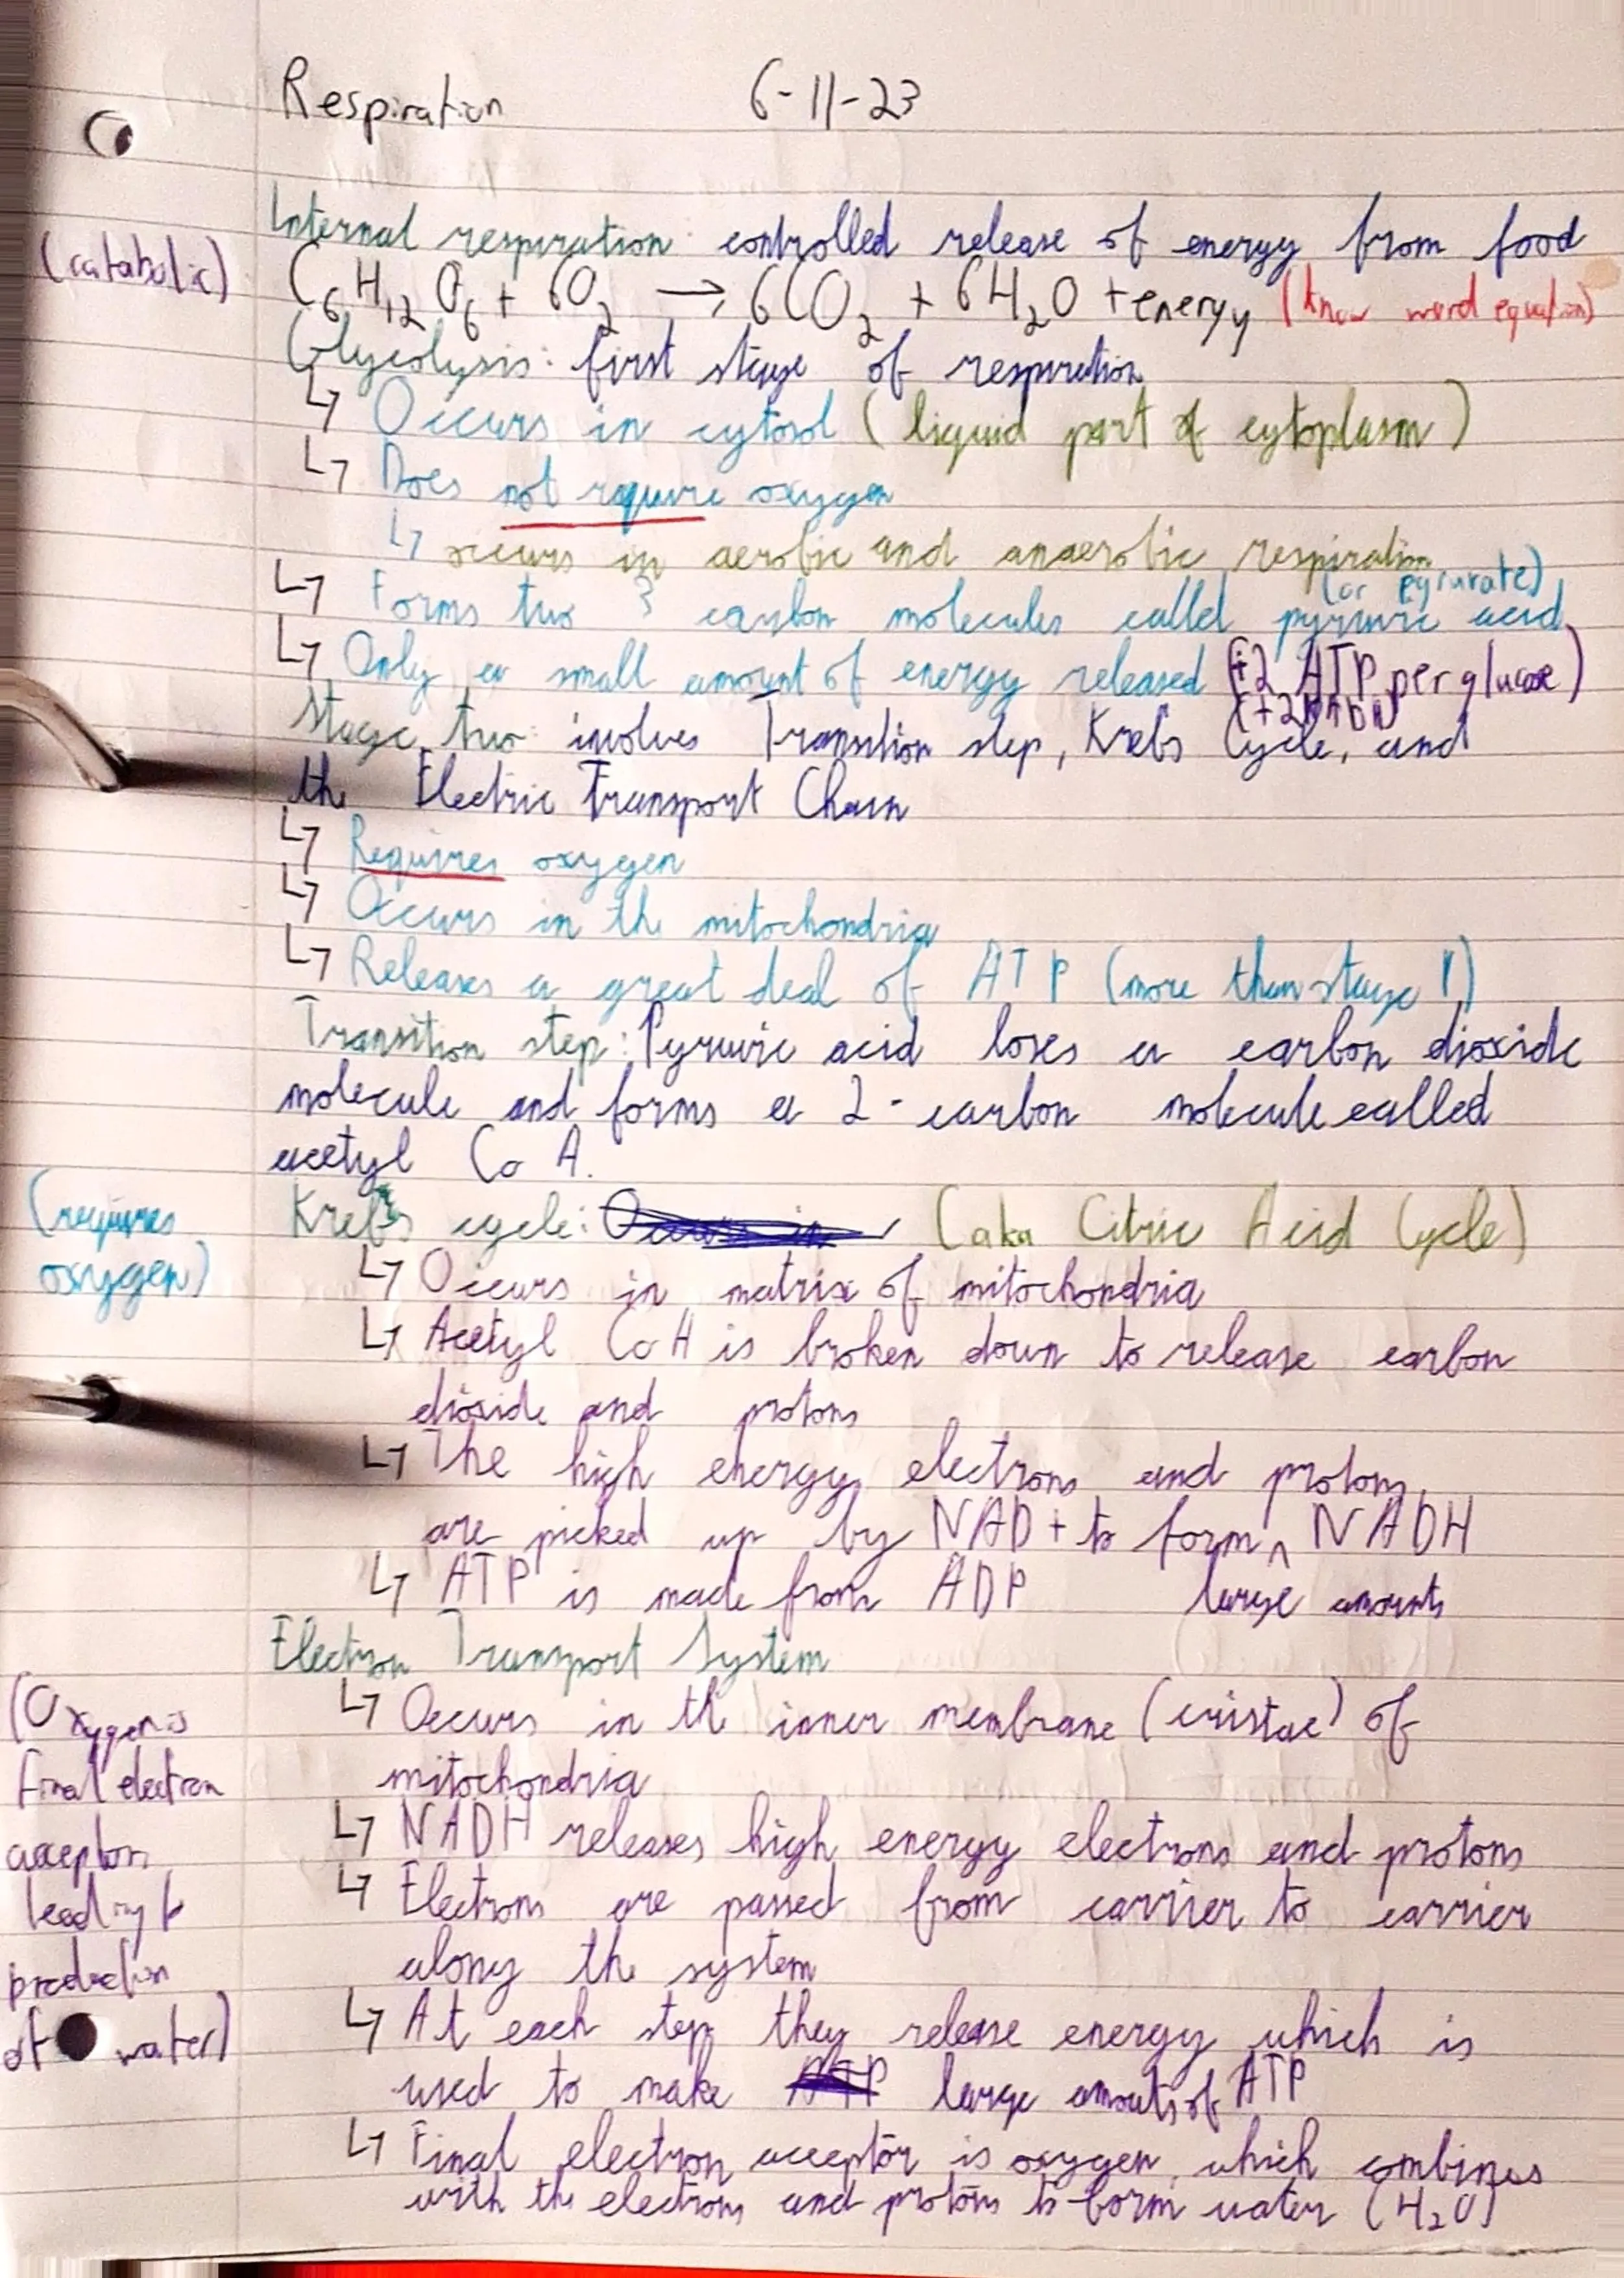 Respiration 6-11-23
Internal respiration: controlled release of energy from food
(catabolic)
C6H12O6 + 6O2 → 6CO2 + 6H2O + energy (know word equation)
Glycolysis: first stage of respiration
↳ Occurs in cytosol (liquid part of cytoplasm)
↳ Does not require oxygen
↳ occurs in aerobic and anaerobic respiration
↳ Forms two 3 carbon molecules called pyruvic acid
↳ Only a small amount of energy released (+2 ATP per glucose)
Stage two: involves Transition step, Krebs Cycle, and
the Electric Transport Chain
↳ Requires oxygen
↳ Occurs in the mitochondria
↳ Releases a great deal of ATP (more than stage 1)
Transition step: Pyruvic acid loses a carbon dioxide
molecule and forms a 2-carbon molecule called
acetyl Co A.
(requires
oxygen)
Krebs cycle: (aka Citric Acid Cycle)
↳ Occurs in matrix of mitochondria
↳ Acetyl CoA is broken down to release carbon
dioxide and protons
↳ The high energy electrons and protons
are picked up by NAD+ to form ^ NADH
large amounts
↳ ATP is made from ADP
Electron Transport System
↳ Occurs in the inner membrane (cristae) of
mitochondria
↳ NADH releases high energy electrons and protons
↳ Electrons are passed from carrier to carrier
along the system
↳ At each step they release energy which is
used to make large amouts of ATP
↳ Final electron acceptor is oxygen, which combines
with the electrons and protons to form water (H2O)
(Oxygen is
final electron
acceptor,
leading to
production
of water)